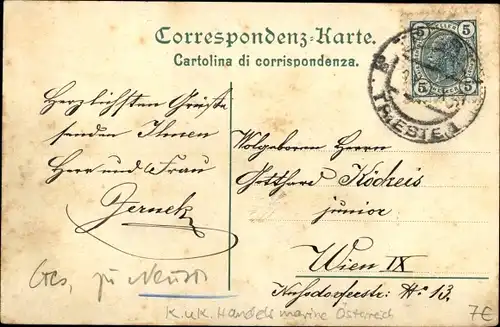 Correspondenz-Karte.
Cartolina di corrispondenza.
5 5
5 5
TRIESTE 1
Herzlichsten Grüße
senden Ihnen
Herr und Frau
Jernek
Wolgeboren Herrn
Gotthard Köcheis
junior
Wien IX
Nussdorferstr: No 13.
zu
K.u.K. Handelsmarine Österreich
7€